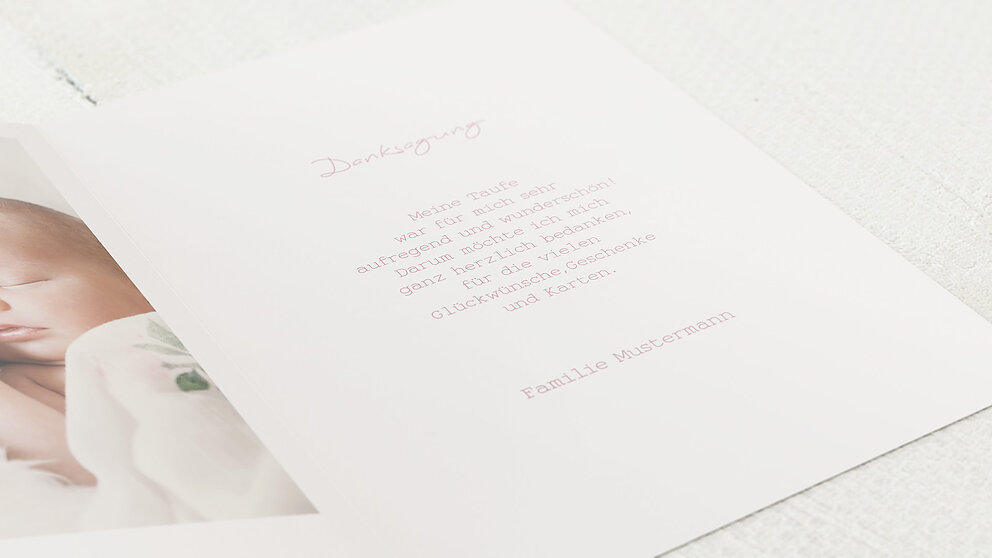 Danksagung
Meine Taufe
war für mich sehr
aufregend und wunderschön!
Darum möchte ich mich
ganz herzlich bedanken,
für die vielen
Glückwünsche,Geschenke
und Karten.
Familie Mustermann